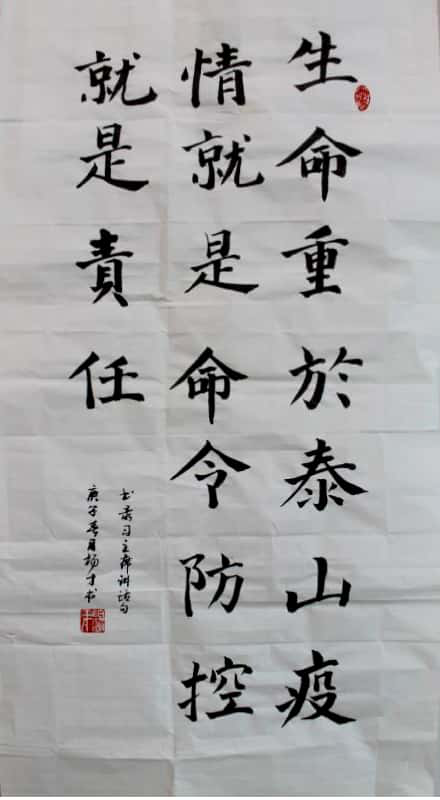 生命重於泰山疫
情就是命令防控
就是責任
书录习主席讲话句
庚子春月杨才书